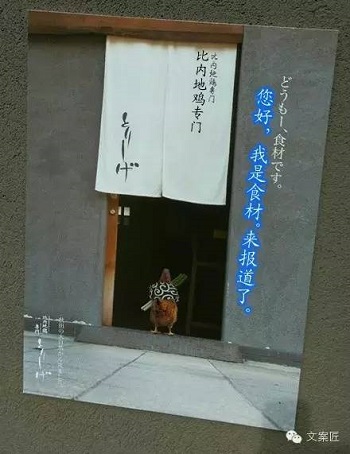 どうもー、食材です。
您好，我是食材。来报道了。
比内地鶏专门
比内地鸡专门
とりしげ
比内地鶏
専門
とりしげ
文案匠